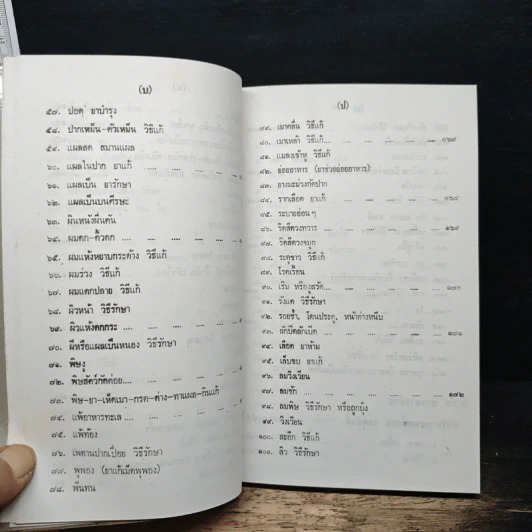 (บ)
๕๗. ปอด ยาบำรุง
๕๘. ปากเหม็น-ตัวเหม็น วิธีแก้
๕๙. แผลสด สมานแผล
๖๐. แผลในปาก ยาแก้
๖๑. แผลเป็น ยารักษา
๖๒. แผลเป็นบนศีรษะ
๖๓. ผินหนังผื่นคัน
๖๔. ผมดก-คิ้วดก .... .... .... ....
๖๕. ผมแห้งหยาบกระด้าง วิธีแก้
๖๖. ผมร่วง วิธีแก้
๖๗. ผมแตกปลาย วิธีแก้
๖๘. ผิวหน้า วิธีรักษา
๖๙. ผิวแห้งตกกระ .... .... .... ....
๗๐. ฝีหรือแผลเป็นหนอง วิธีรักษา
๗๑. พิษงู
๗๒. พิษสัตว์กัดต่อย.... .... .... ....
๗๓. พิษ-ยา-เห็ดเมา-กรด-ด่าง-ทาแผล-กินแก้
๗๔. แพ้อาหารทะเล .... .... .... ....
๗๕. แพ้ท้อง
๗๖. เพดานปากเปื่อย วิธีรักษา
๗๗. พุพอง (ยาแก้เม็ดพุพอง)
๗๘. ฟันทน
(ป)
๗๙. เมาคลื่น วิธีแก้
๘๐. เมาเหล้า วิธีแก้.... .... .... .... ๑๖๗
๘๑. แมลงเข้าหู วิธีแก้
๘๒. ย่อยอาหาร (ยาช่วยย่อยอาหาร)
๘๓. ยางมะม่วงกัดปาก
๘๔. รากเลือด ยาแก้ .... .... .... ๑๖๘
๘๕. ระบายอ่อนๆ
๘๖. ริดสีดวงทวาร .... .... .... .... ๑๖๙
๘๗. ริดสีดวงจมูก
๘๘. ระดูขาว วิธีแก้
๘๙. โรคเรื้อน
๙๐. เริม หรืองูสวัด.... .... .... .... ๑๗๐
๙๑. รังแค วิธีรักษา
๙๒. รอยช้ำ, โดนประตู, หน้าต่างหนีบ
๙๓. ลักปิดลักเปิด .... .... .... .... ๑๗๑
๙๔. เลือด ยาห้าม
๙๕. เล็บขบ ยาแก้
๙๖. ลมวิงเวียน
๙๗. ลมชัก .... .... .... .... ๑๗๒
๙๘. ลมพิษ วิธีรักษา หรือถูกบุ้ง
๙๙. วิงเวียน
๑๐๐. สะอึก วิธีแก้
๑๐๑. สิว วิธีรักษา